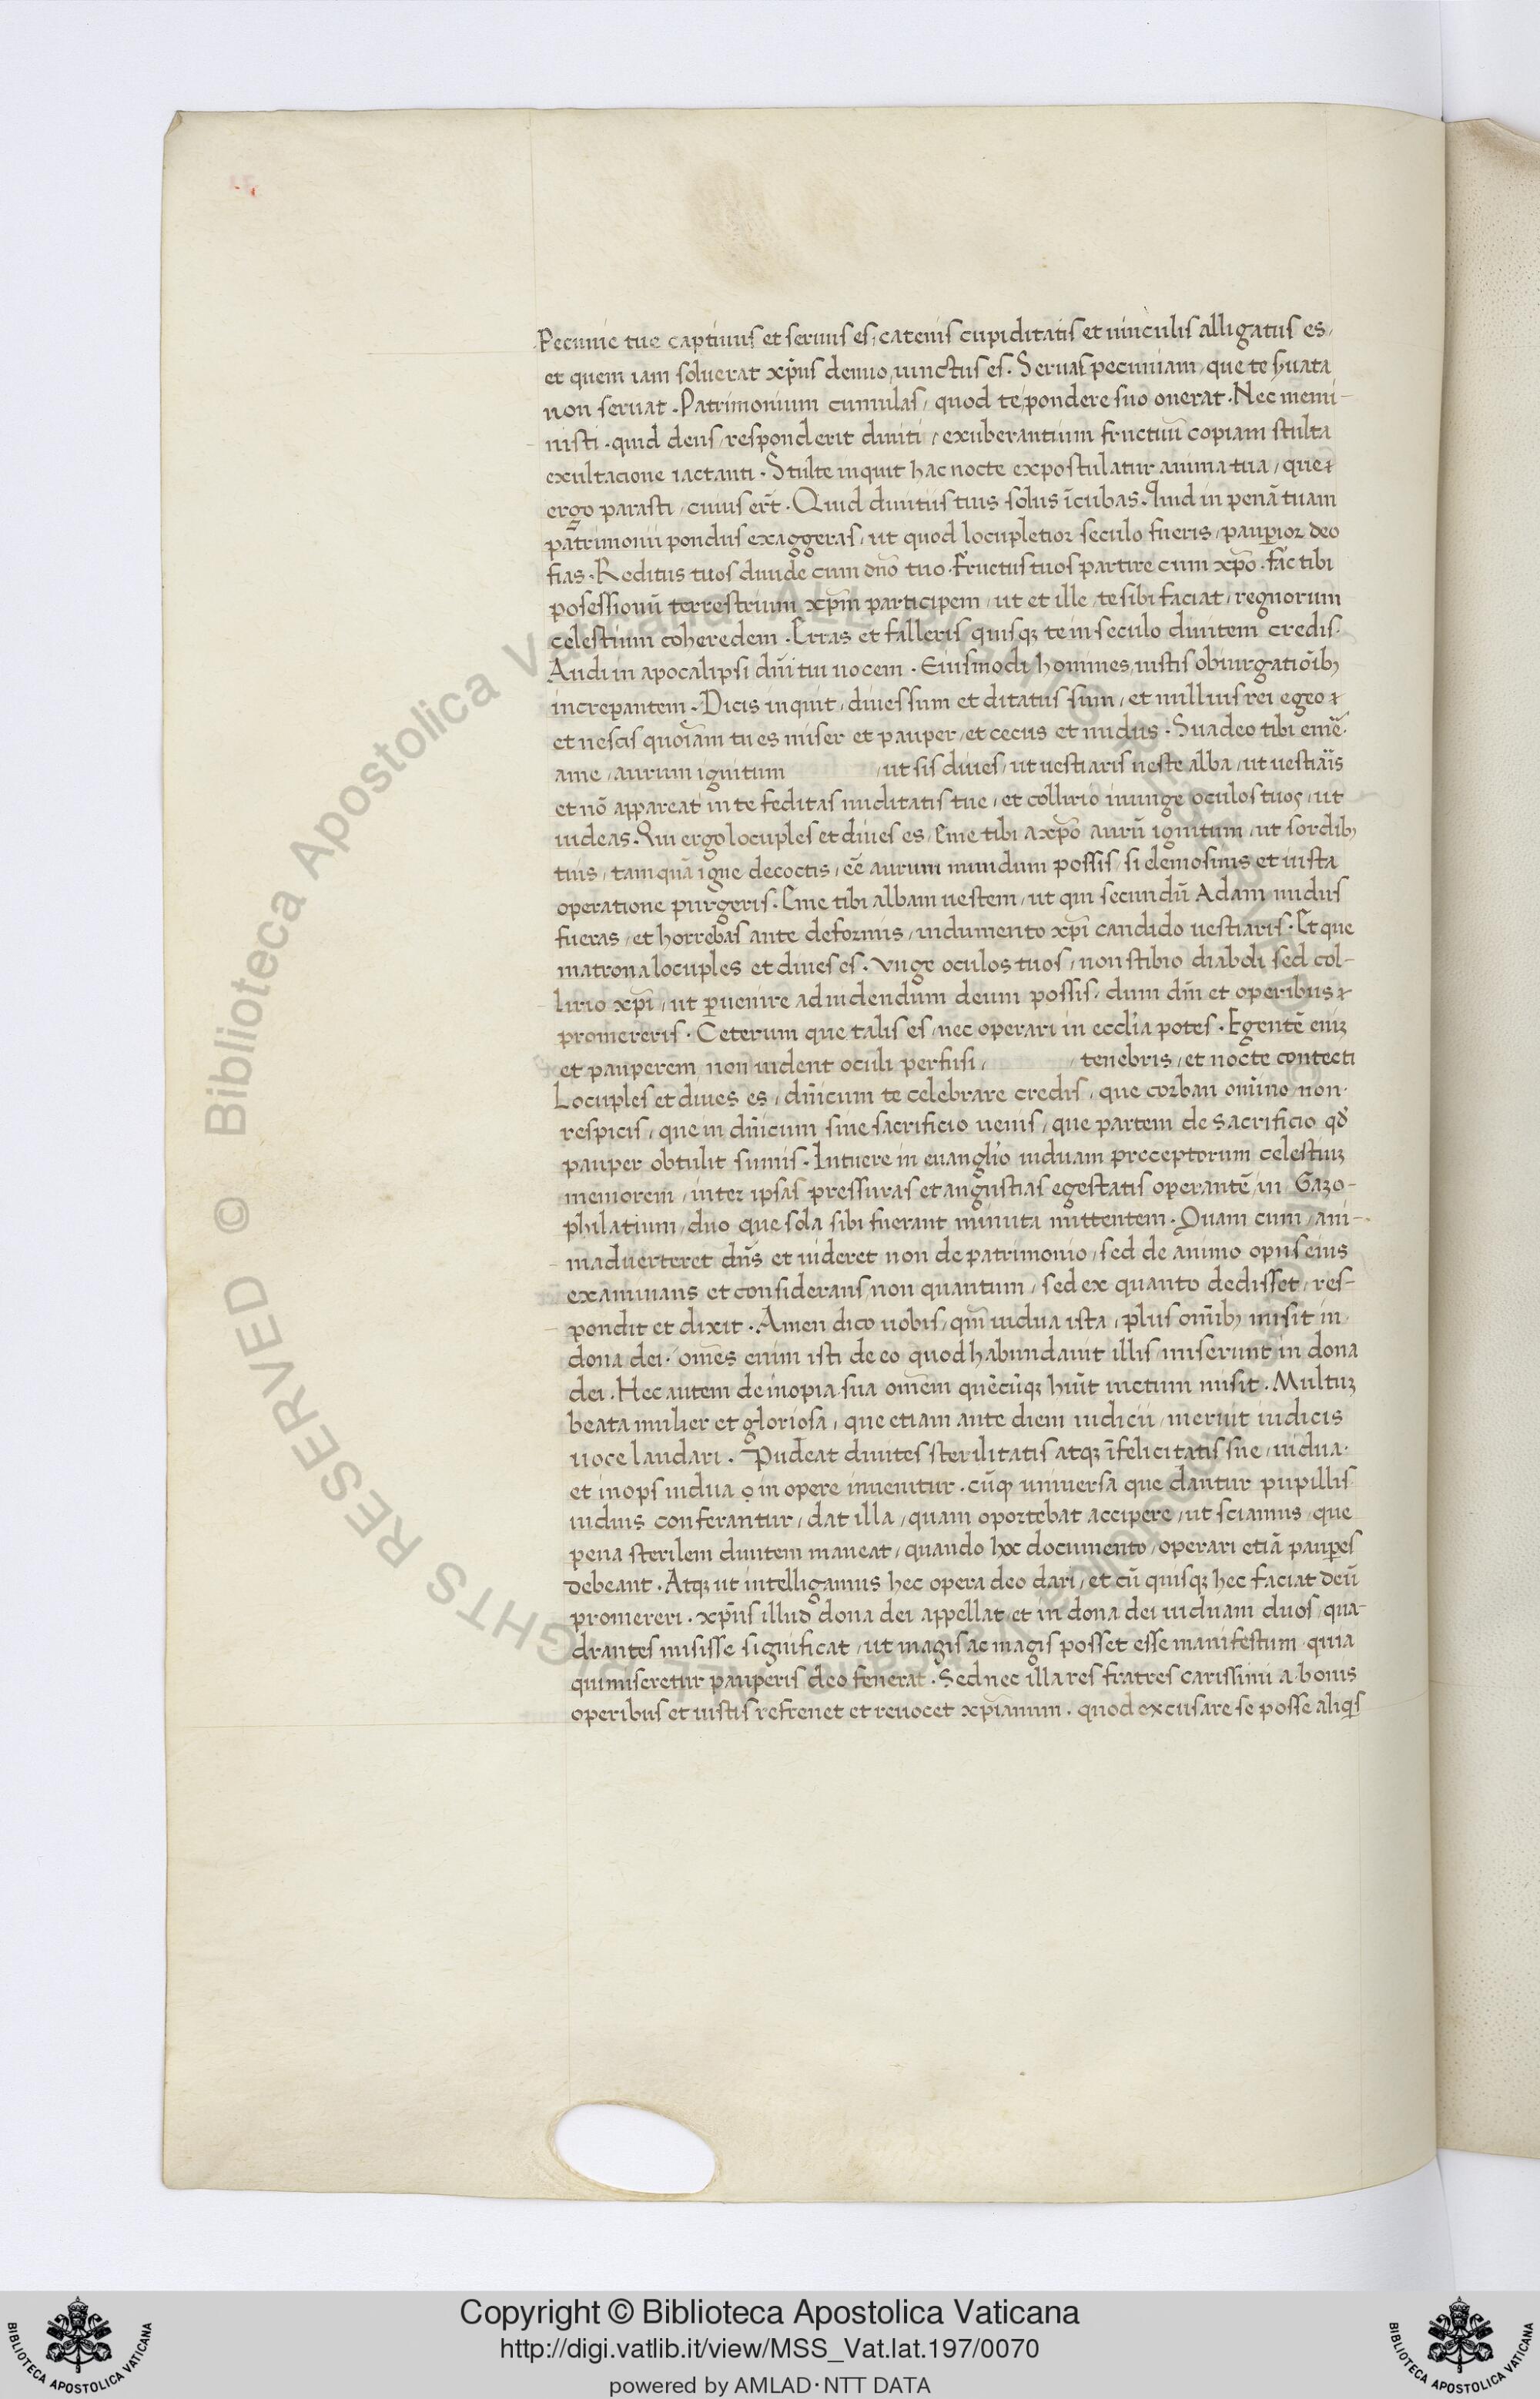 Pecunie tue captiuus et seruus es, catenis cupiditatis et uinculis alligatus es,
et quem iam soluerat xp̄us denuo, uinctus es. Seruas pecuniam, que te
non seruat. Patrimonium cumulas, quod te pondere suo onerat. Nec memi-
nisti. quid deus, responderit diuiti, exuberantium fructuū copiam stulta
exultacione iactanti. Stulte inquit hac nocte expostulatur anima tua, que
ergo parasti, cuius ert̄. Quid diuitiis tuis solus īcubas. Quid in penā tuam
patrimonii pondus exaggeras, ut quod locupletior seculo fueris, paup̄ior deo
fias. Reditus tuos diuide cum dn̄o tuo. Fructus tuos partire cum xp̄o. fac tibi
posessionū terrestrium xp̄m participem, ut et ille, te sibi faciat, regnorum
celestium coheredem. Erras et falleris quisqꝫ te in seculo diuitem credis.
Audi in apocalipsi dn̄i tui uocem. Eiusmodi homines, iustis obiurgatiōibꝫ
increpantem. Dicis inquit, diues sum et ditatus sum, et nullius rei egeo
et nescis quoīam tu es miser et pauper, et cecus et nudus. Suadeo tibi emē
a me, aurum ignitum , ut sis diues, ut uestiaris ueste alba, ut uestiaīs
et nō appareat in te feditas nuditatis tue, et collirio inunge oculos tuos, ut
uideas. Qui ergo locuples et diues es, Eme tibi a xp̄o aurū ignitum, ut sordibꝫ
tuis, tamquā igne decoctis, eē aurum mundum possis, si elemosinis et iusta
operatione purgeris. Eme tibi albam uestem, ut qui secundū Adam nudus
fueras, et horrebas ante deformis, indumento xp̄i candido uestiaris. Et que
matrona locuples et diues es. vnge oculos tuos, non stibio diaboli sed col-
lirio xp̄i, ut p̄uenire ad uidendum deum possis, dum dn̄i et operibus
promereris. Ceterum que talis es, nec operari in eccl̄ia potes. Egentē eniꝫ
et pauperem, non uident oculi perfusi, , tenebris, et nocte contecti
Locuples et diues es, dn̄icum te celebrare credis, que corban om̄ino non
respicis, que in dn̄icum sine sacrificio uenis, que partem de sacrificio qd̄
pauper obtulit sumis. Intuere in euangl̄io uiduam preceptorum celestiuꝫ
memorem, inter ipsas pressuras et angustias egestatis operantē, in Gazo-
philatium, duo que sola sibi fuerant minuta mittentem. Quam cum, ani-
maduerteret dn̄s et uideret non de patrimonio, sed de animo opus eius
examinans et considerans, non quantum, sed ex quanto dedisset, res-
pondit et dixit. Amen dico uobis, qm̄ uidua ista, plus om̄ibꝫ misit in
dona dei. om̄es enim isti de eo quod habundauit illis miserunt in dona
dei. Hec autem de inopia sua om̄em quēcūqꝫ hūit uictum misit. Multuꝫ
beata mulier et gloriosa, que etiam ante diem iudicii, meruit iudicis
uoce laudari. Pudeat diuites sterilitatis atqꝫ īfelicitatis sue, uidua
et inops uidua in opere inuenitur. cūqꝫ uniuersa que dantur pupillis
uiduis conferantur, dat illa, quam oportebat accipere, ut sciamus, que
pena sterilem diuitem maneat, quando hoc documento, operari etiā paup̄es
debeant. Atqꝫ ut intelligamus hec opera deo dari, et cū quisqꝫ hec faciat deū
promereri. xp̄us illud dona dei appellat, et in dona dei uiduam duos, qua-
drantes misisse significat, ut magis ac magis posset esse manifestum, quia
qui miseretur pauperis deo fenerat. Sed nec illa res fratres carissimi a bonis
operibus et iustis refrenet et reuocet xp̄ianum. quod excusare se posse aliqis
Copyright © Biblioteca Apostolica Vaticana
http://digi.vatlib.it/view/MSS_Vat.lat.197/0070
powered by AMLAD·NTT DATA
BIBLIOTECA APOSTOLICA VATICANA
BIBLIOTECA APOSTOLICA VATICANA
Biblioteca Apostolica Vaticana ALL RIGHTS RESERVED ©